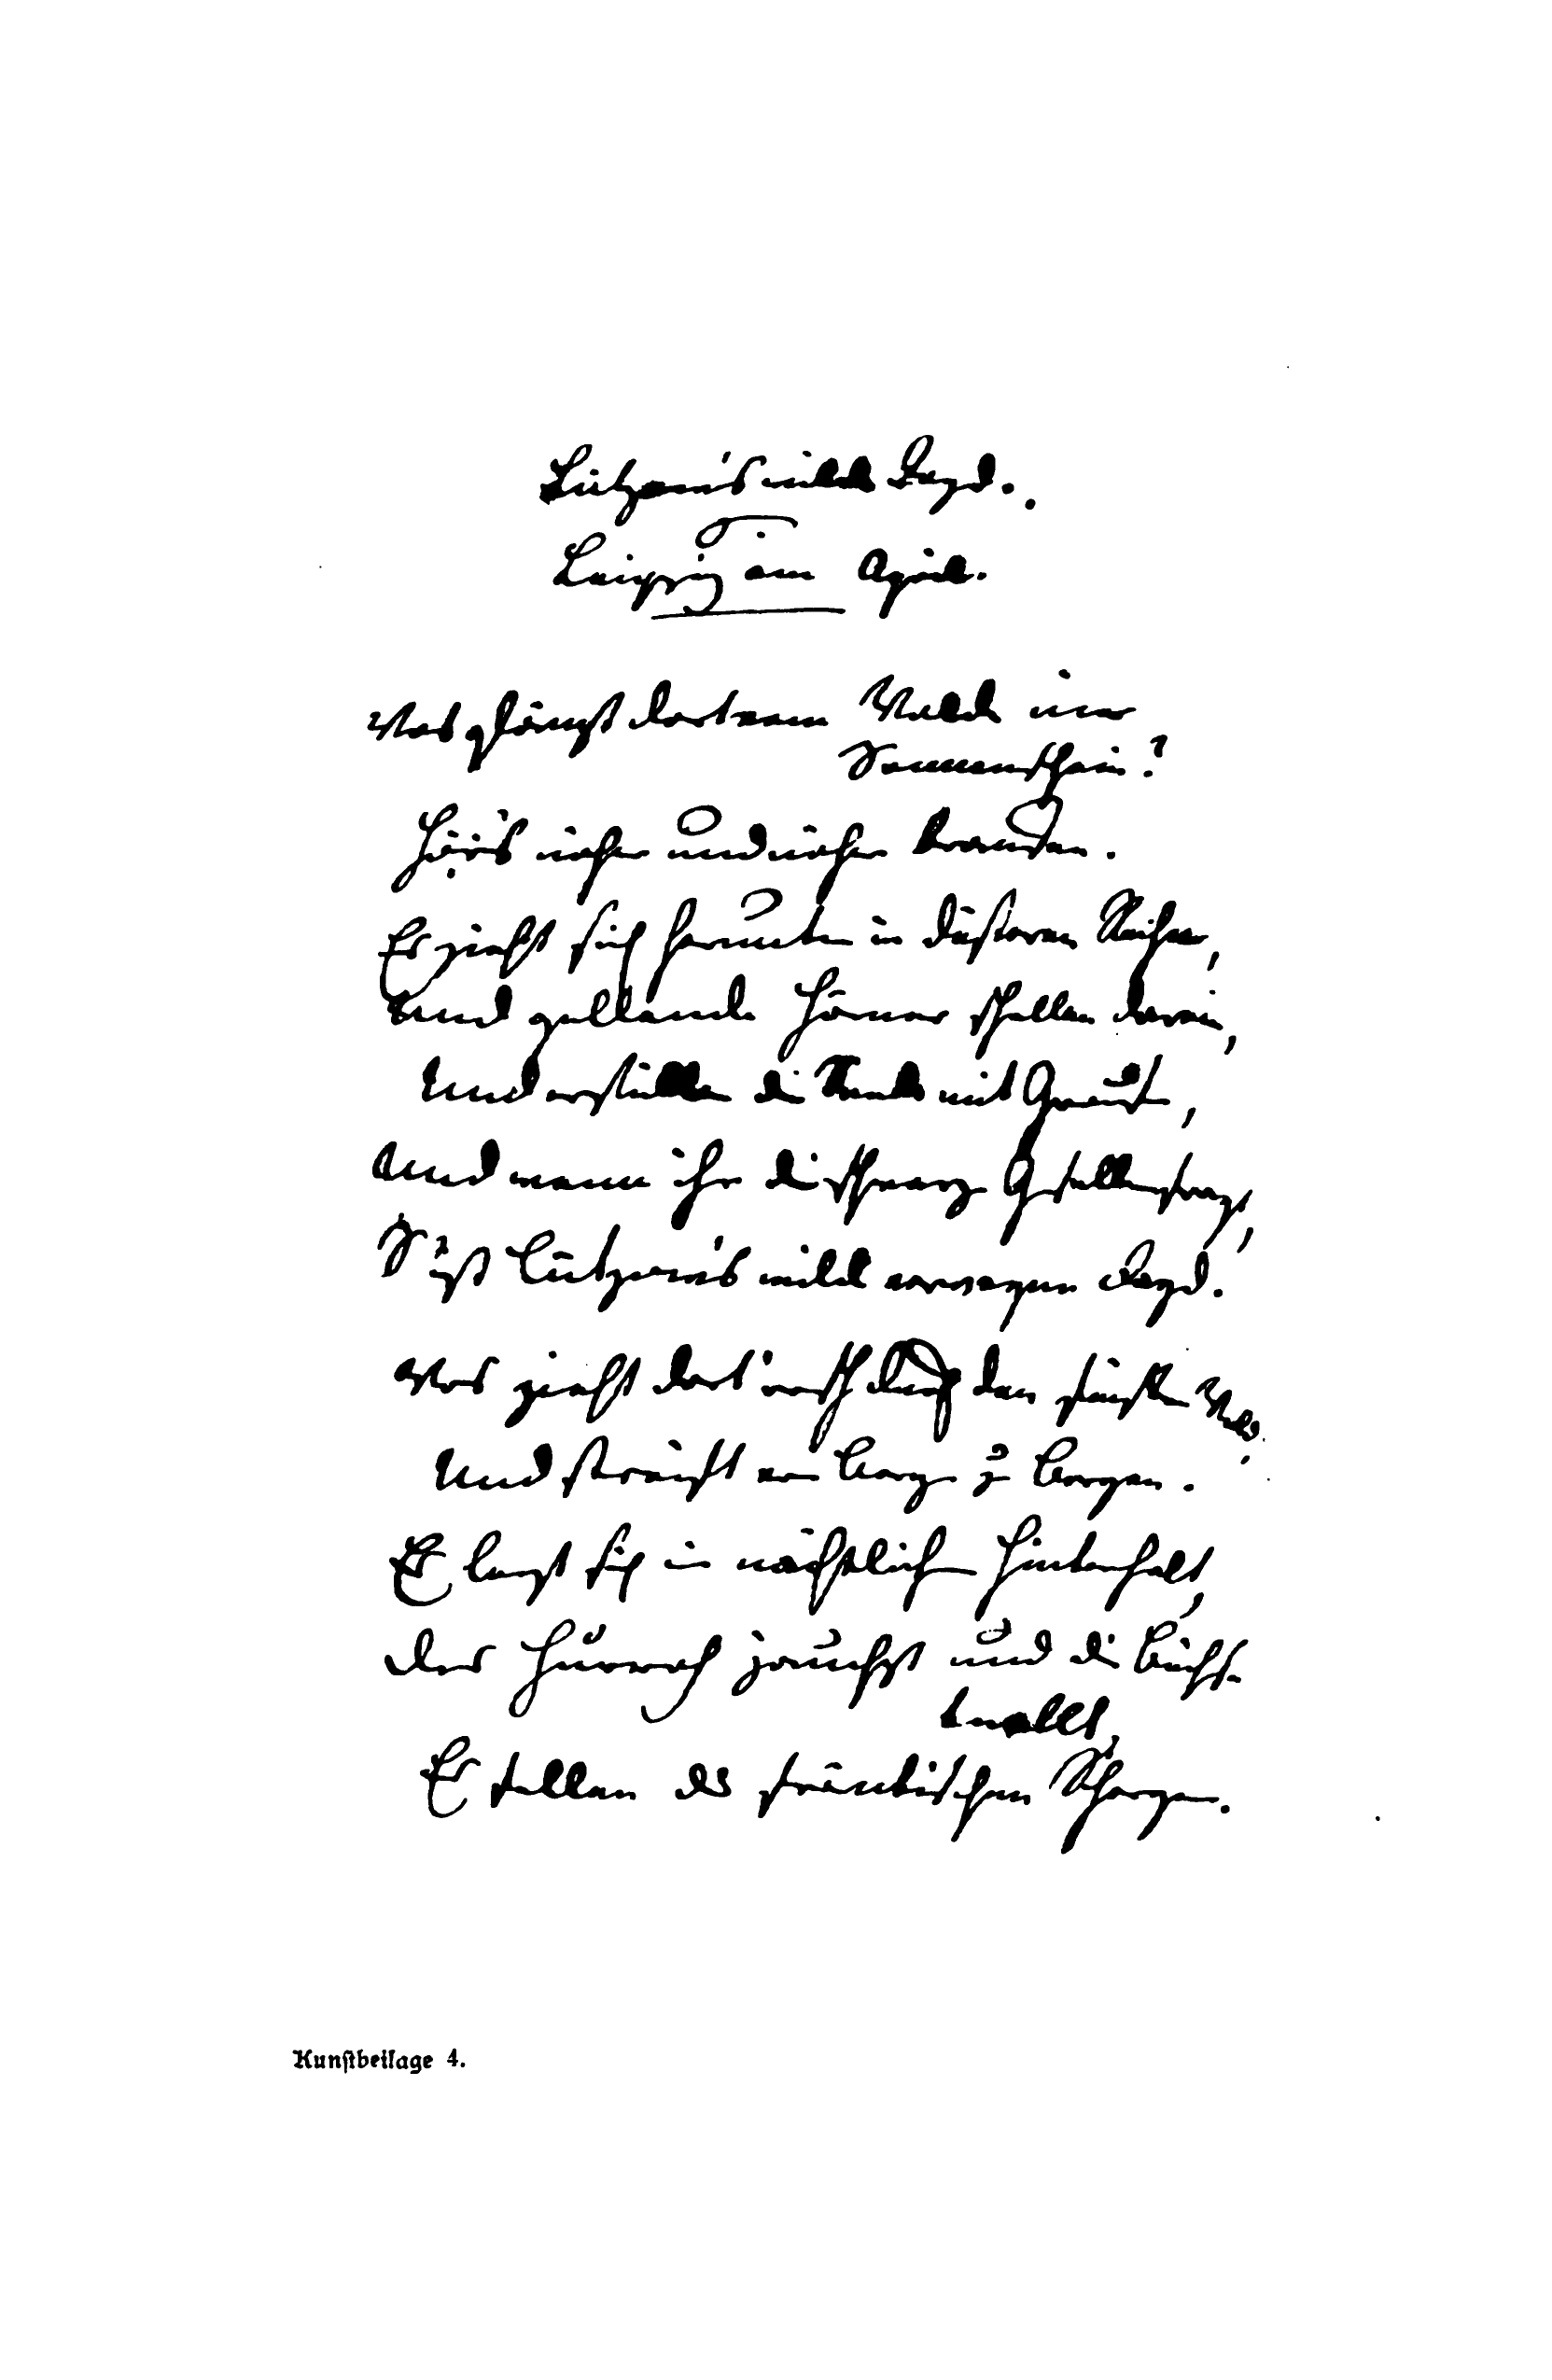 Lützow's wilde Jagd.
Leipzig am April.
Was glänzt dort vom Walde im
Sonnenschein?
Hör's näher und näher brausen.
Es zieht sich herunter in düsteren Reihen,
Und gellende Hörner schallen darein,
Und erfüllen die Seele mit Graus,
Und wenn ihr die schwarzen Gesellen fragt,
S' ist Lützow's wilde verwegene Jagd.
Was zieht dort rasch durch den finstern Wald
Und streift von Berge zu Bergen.
Es legt sich in nächtlichen Hinterhalt,
Das Hurrah jauchzt und die Büchse
knallt,
Es fallen die fränkischen Schergen.
Kunstbeilage 4.